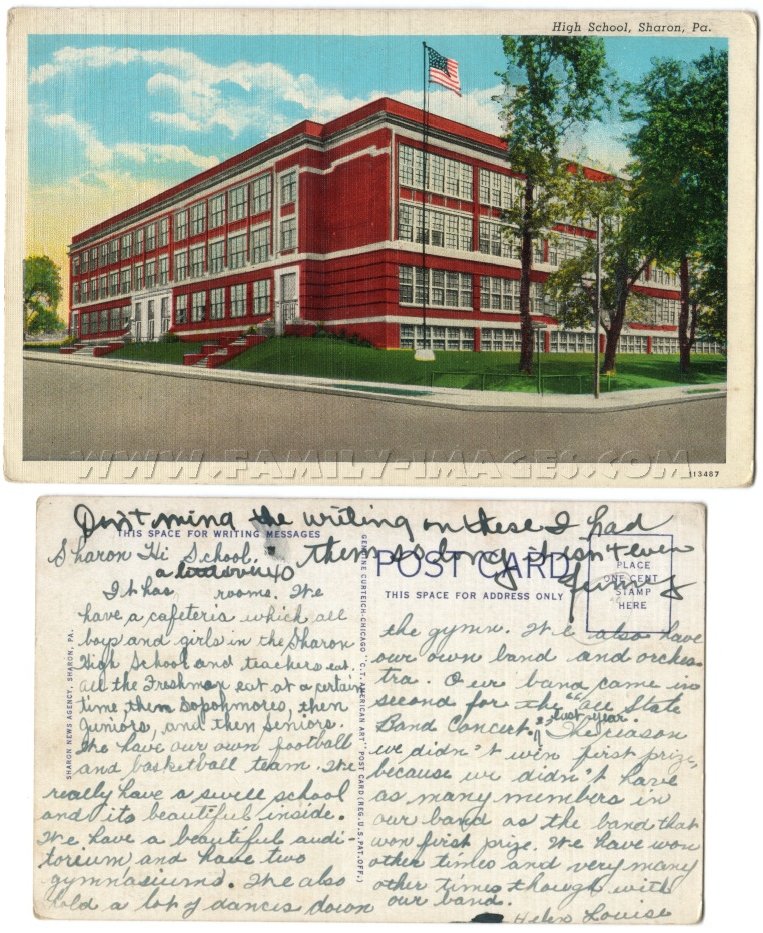 High School, Sharon, Pa.
WWW.FAMILY-IMAGES.COM
113487
Don't mind the writing on these I had
them so long it isn't even
funny
THIS SPACE FOR WRITING MESSAGES
POST CARD
THIS SPACE FOR ADDRESS ONLY
PLACE
ONE CENT
STAMP
HERE
SHARON NEWS AGENCY, SHARON, PA.
GENUINE CURTEICH-CHICAGO "C.T. AMERICAN ART" POST CARD (REG. U.S. PAT. OFF.)
Sharon Hi School.
a little over 40
It has rooms. We
have a cafeteria which all
boys and girls in the Sharon
High School and teachers eat.
All the Freshman eat at a certain
time then Sophmores, then
Juniors, and then Seniors.
We have our own football
and basketball team. We
really have a swell school
and its beautiful inside.
We have a beautiful audi-
toreum and have two
gymnasiums. We also
hold a lot of dances down
the gymn. We also have
our own band and orches-
tra. Our band came in
second for the "All State
Band Concert." last year. The reason
we didn't win first prize,
because we didn't have
as many members in
our band as the band that
won first prize. We have won
other times and very many
other times though with
our band.
Helen Louise